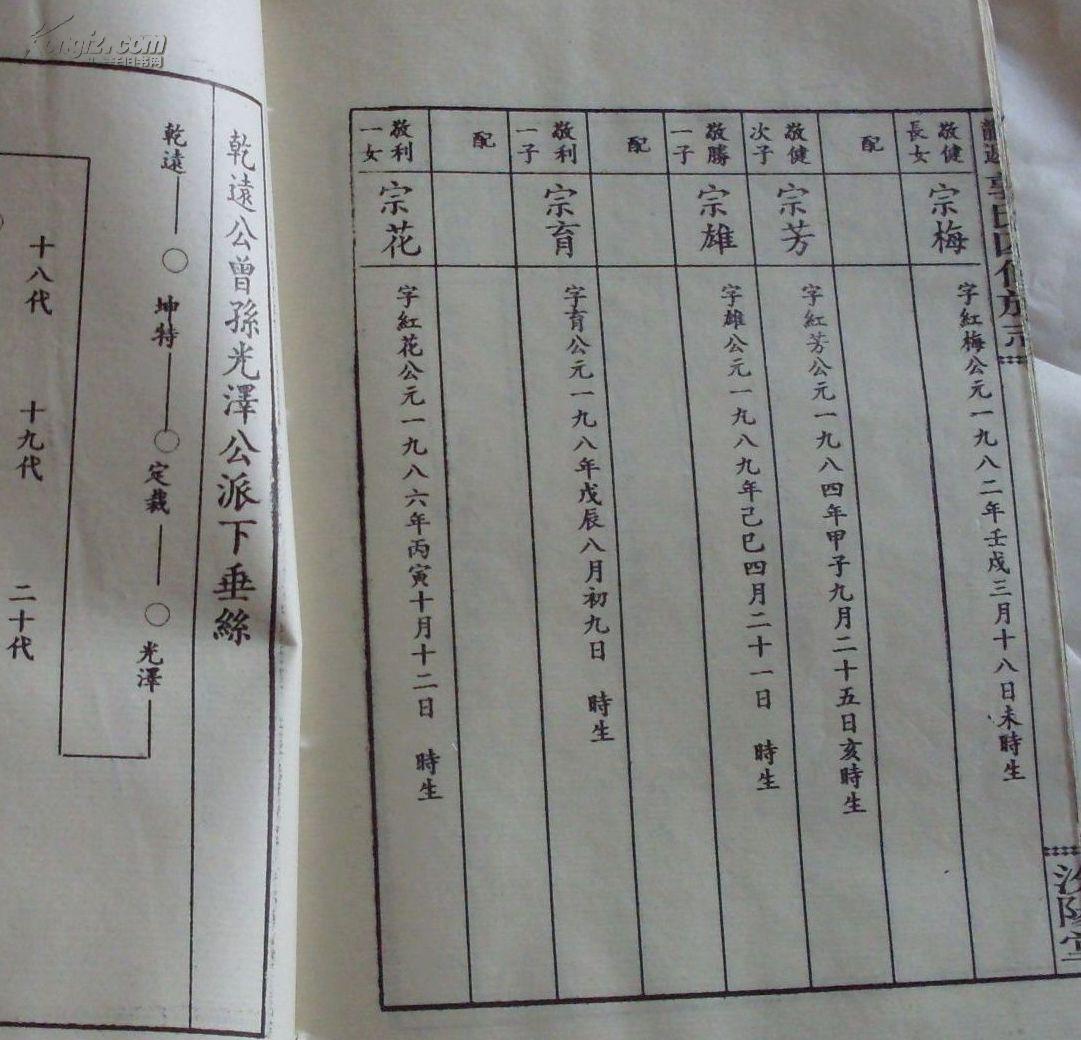 敬健長女
宗梅
字紅梅公元一九八二年壬戌三月十八日未時生
配
敬健次子
宗芳
字紅芳公元一九八四年甲子九月二十五日亥時生
敬勝一子
宗雄
字雄公元一九八九年己巳四月二十一日 時生
配
敬利一子
宗育
字育公元一九八年戊辰八月初九日 時生
配
敬利一女
宗花
字紅花公元一九八六年丙寅十月十二日 時生
乾遠公曾孫光澤公派下垂絲
乾遠
坤特
定裁
光澤
十八代
十九代
二十代